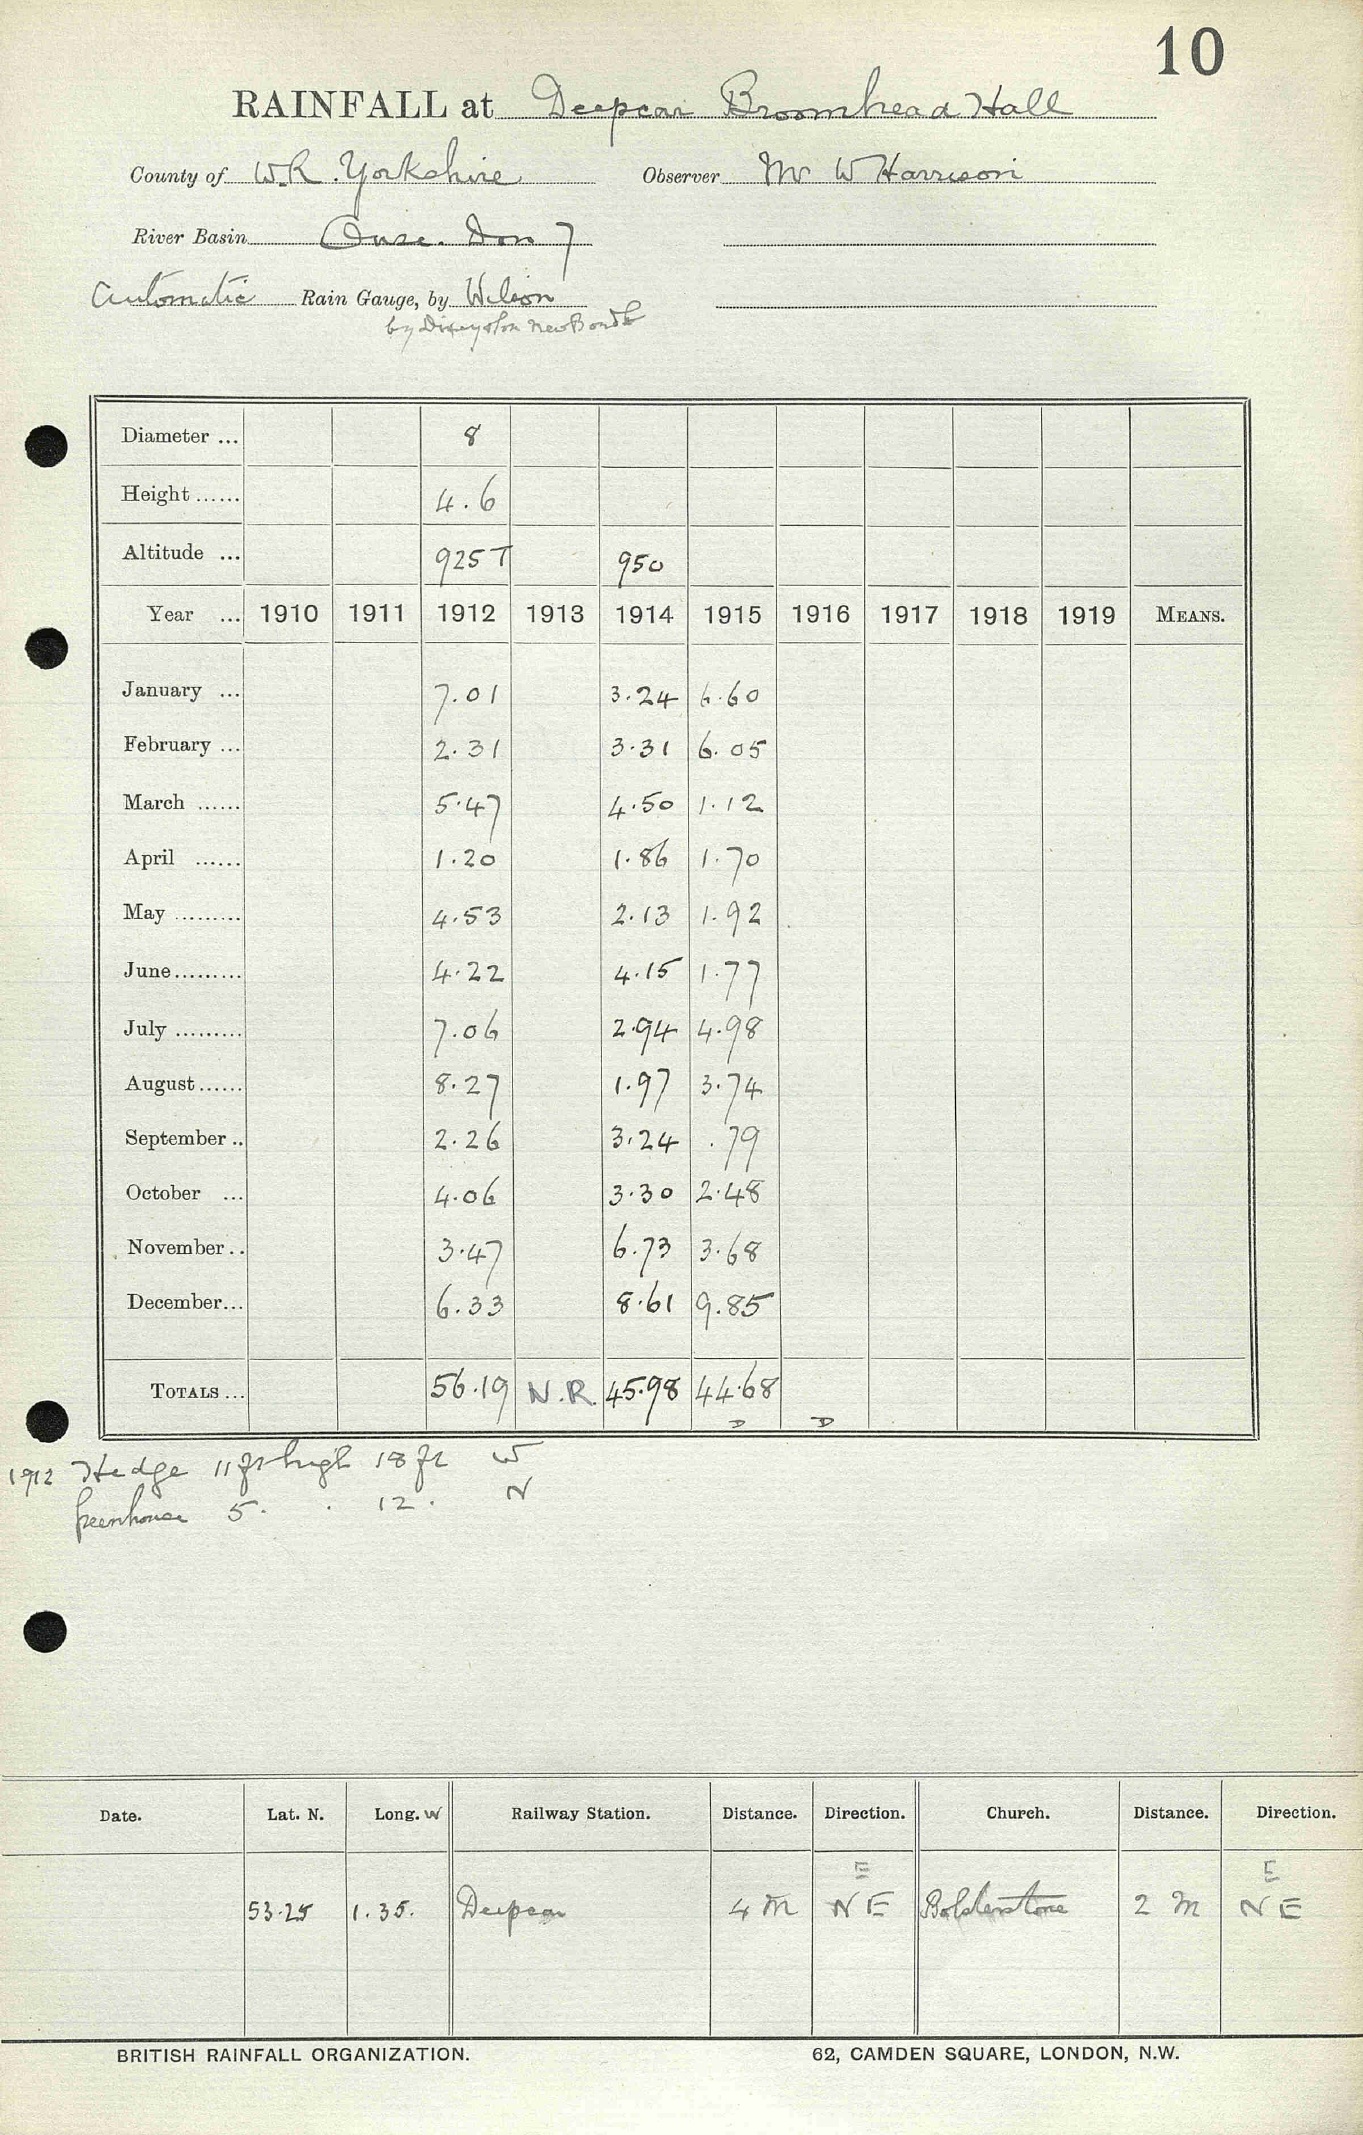 10
RAINFALL at Deepcar Broomhead Hall
County of W.R. Yorkshire Observer Mr W Harrison
River Basin Ouse. Don 7
Automatic Rain Gauge, by Wilson
by New Bond St
Diameter ... 8
Height ...... 4.6
Altitude ... 925 T 950
Year ... 1910 1911 1912 1913 1914 1915 1916 1917 1918 1919 MEANS.
January ... 7.01 3.24 6.60
February ... 2.31 3.31 6.05
March ...... 5.47 4.50 1.12
April ...... 1.20 1.86 1.70
May ......... 4.53 2.13 1.92
June ......... 4.22 4.15 1.77
July ......... 7.06 2.94 4.98
August ...... 8.27 1.97 3.74
September .. 2.26 3.24 .79
October ... 4.06 3.30 2.48
November .. 3.47 6.73 3.68
December ... 6.33 8.61 9.85
TOTALS ... 56.19 N.R. 45.98 44.68
D D
1912 Hedge 11 ft high 18 ft W
Greenhouse 5 . . 12 . N
Date. Lat. N. Long. W Railway Station. Distance. Direction. Church. Distance. Direction.
E E
53.25 1.35. Deepcar 4 m N E Bolderstone 2 m N E
BRITISH RAINFALL ORGANIZATION. 62, CAMDEN SQUARE, LONDON, N.W.